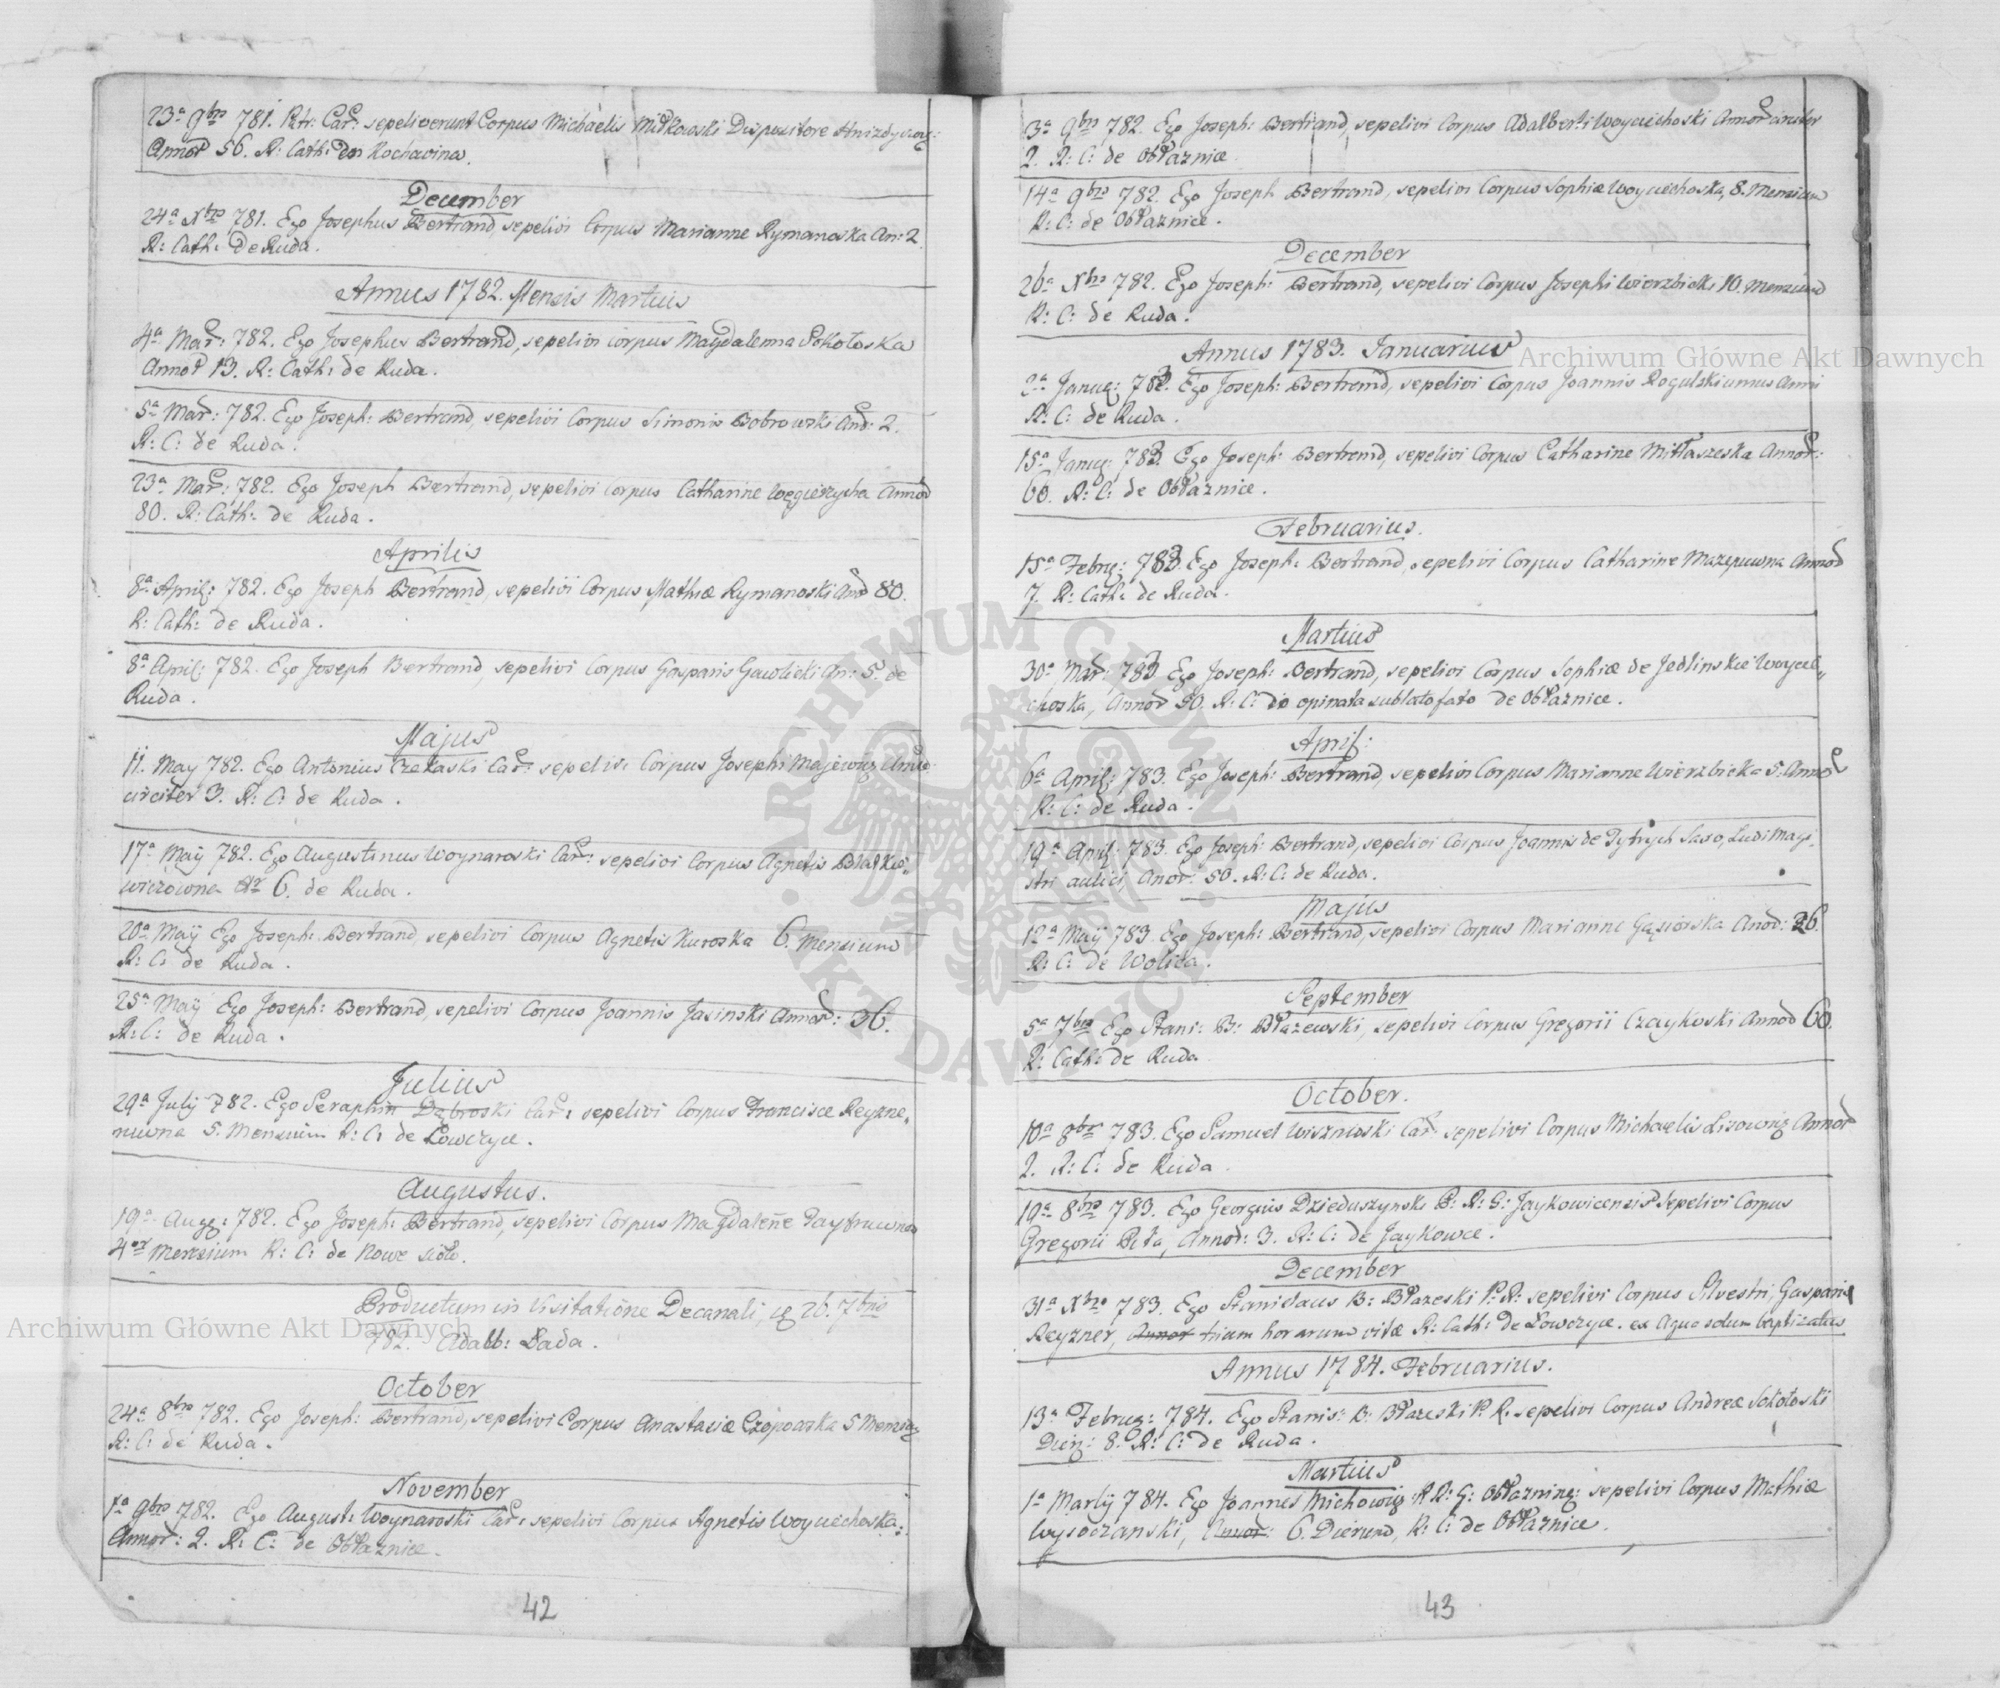 23a 9bris 781. Ptr: Car: sepeliverunt Corpus Michaelis Miłkowski Dispositore
Annor 56. R: Cath: Kochavina.
December
24a Xbris 781. Ego Josephus Bertrand, sepelivi Corpus Marianne Rymanoska An: 2.
R: Cath: De Ruda.
Annus 1782. Mensis Martius
4a Mar: 782. Ego Josephus Bertrand, sepelivi Corpus Magdalenna Sokołoska
Annor 13. R: Cath: de Ruda.
5a Mar: 782. Ego Joseph: Bertrand, sepelivi Corpus Simonis Bobrowski Ano: 2.
R: C: de Ruda.
23a Mar: 782. Ego Joseph Bertrand, sepelivi Corpus Catharine Annor
80. R: Cath: de Ruda.
Aprilis
8a April: 782. Ego Joseph Bertrand, sepelivi Corpus Mathiæ Rymanoski Ano 80.
R: Cath: de Ruda.
8a April: 782. Ego Joseph Bertrand, sepelivi Corpus Gasparis Gawlicki An: 5. de
Ruda.
Majus
11. May 782. Ego Antonius Czekaski Car: sepelivi Corpus Josephi Majewicz
circiter 3. R: C: de Ruda.
17a Maÿ 782. Ego Augustinus Woynaroski Car: sepelivi Corpus Agnetis Białko„
wiczowna 6. de Ruda.
20a Maÿ Ego Joseph: Bertrand, sepelivi Corpus Agnetis Kuroska 6. Mensium
R: C: de Ruda.
25a Maÿ Ego Joseph: Bertrand, sepelivi Corpus Joannis Jasinski Annor: 36.
R: C: de Ruda.
Julius
29a July 782. Ego Seraphin Dąbroski Car: sepelivi Corpus Francisce Reyzne„
ruwna 5. Mensium R: C: de Łowczyce.
Augustus.
19a Aug: 782. Ego Joseph: Bertrand, sepelivi Corpus Magdalene
4or Mensium R: C: de Nowe sioło.
Productum in Visitatione Decanali, 26. 7bris
782. Adalb: Bada.
October
24a 8bris 782. Ego Joseph: Bertrand, sepelivi Corpus Anastasiæ Czopowska 5 Mensiu
R: C: de Ruda.
November
1a 9bris 782. Ego August: Woynaroski Car: sepelivi Corpus Agnetis Woyciechoska:
Annor: 2. R: C: de Obłaznice.
42
3a 9bris 782. Ego Joseph: Bertrand, sepelivi Corpus Adalberti Woyciechoski Annor circiter
2. R: C: de Obłaznice.
14a 9bris 782. Ego Joseph Bertrand, sepelivi Corpus Sophiæ Woyciechoska, 8. Mensium
R: C: de Obłaznice.
December
26a Xbris 782. Ego Joseph: Bertrand, sepelivi Corpus Josephi Wierzbicki 10. Mensium
R: C: de Ruda.
Annus 1783. Januarius
2a Janua: 783. Ego Joseph: Bertrand, sepelivi Corpus Joannis Rogulski unius Anni
R: C: de Ruda.
15a Janua: 783. Ego Joseph: Bertrand, sepelivi Corpus Catharine Mittaszeska Annor:
60. R: C: de Obłaznice.
Februarius.
15a Febru: 783. Ego Joseph: Bertrand, sepelivi Corpus Catharine Mazepuwna Annor
7. R: Cath: de Ruda.
Martius
30a Mar: 783 Ego Joseph: Bertrand, sepelivi Corpus Sophiæ de Jedlinskie Woycie„
choska, Annor 30. R: C: opinata sublato fato de Obłaznice.
April:
6a April: 783. Ego Joseph: Bertrand, sepelivi Corpus Marianne Wierzbicka 5. Annor
R: C: de Ruda.
19a April: 783. Ego Joseph: Bertrand, sepelivi Corpus Joannis de Dytrych Saso, Ludi Magi
stri aulici, Anor: 50. R: C: de Ruda.
Majus
12a Maÿ 783. Ego Joseph: Bertrand, sepelivi Corpus Marianne Gąsiorska Anor: 26.
R: C: de Wolica.
September
5a 7bris Ego Stani: B: Błazewski, sepelivi Corpus Gregorii Czaykoski Annor 60.
R: Cath: de Ruda
October.
10a 8bris 783. Ego Samuel Wisznioski Car: sepelivi Corpus Michaelis Lisowicz Annor
2. R: C: de Ruda.
19a 8bris 783. Ego Georgius Dzieduszynski P: R: G: Jaykowicensis sepelivi Corpus
Gregorii Bita, Annor: 3. R: C: de Jaykowce.
December
31a Xbris 783. Ego Stanislaus B: Błazeski P: R: sepelivi Corpus Silvestri, Gasparis
Reyzner, Annor trium horarum vitæ R: Cath: de Łowczyce. ex Aqua solum baptizatus
Annus 1784. Februarius.
13a Februa: 784. Ego Stanis: B: Błazeski P. R. sepelivi Corpus Andreæ Sokołoski
Dier: 8. R: C: de Ruda.
Martius
1a Martÿ 784. Ego Joannes Michowicz P R: G: Obłaznine: sepelivi Corpus Mathiæ
Wysoczanski, Annor: 6. Dierum, R: C: de Obłaznice.
43
Archiwum Główne Akt Dawnych
Archiwum Główne Akt Dawnych
ARCHIWUM GŁÓWNE AKT DAWNYCH